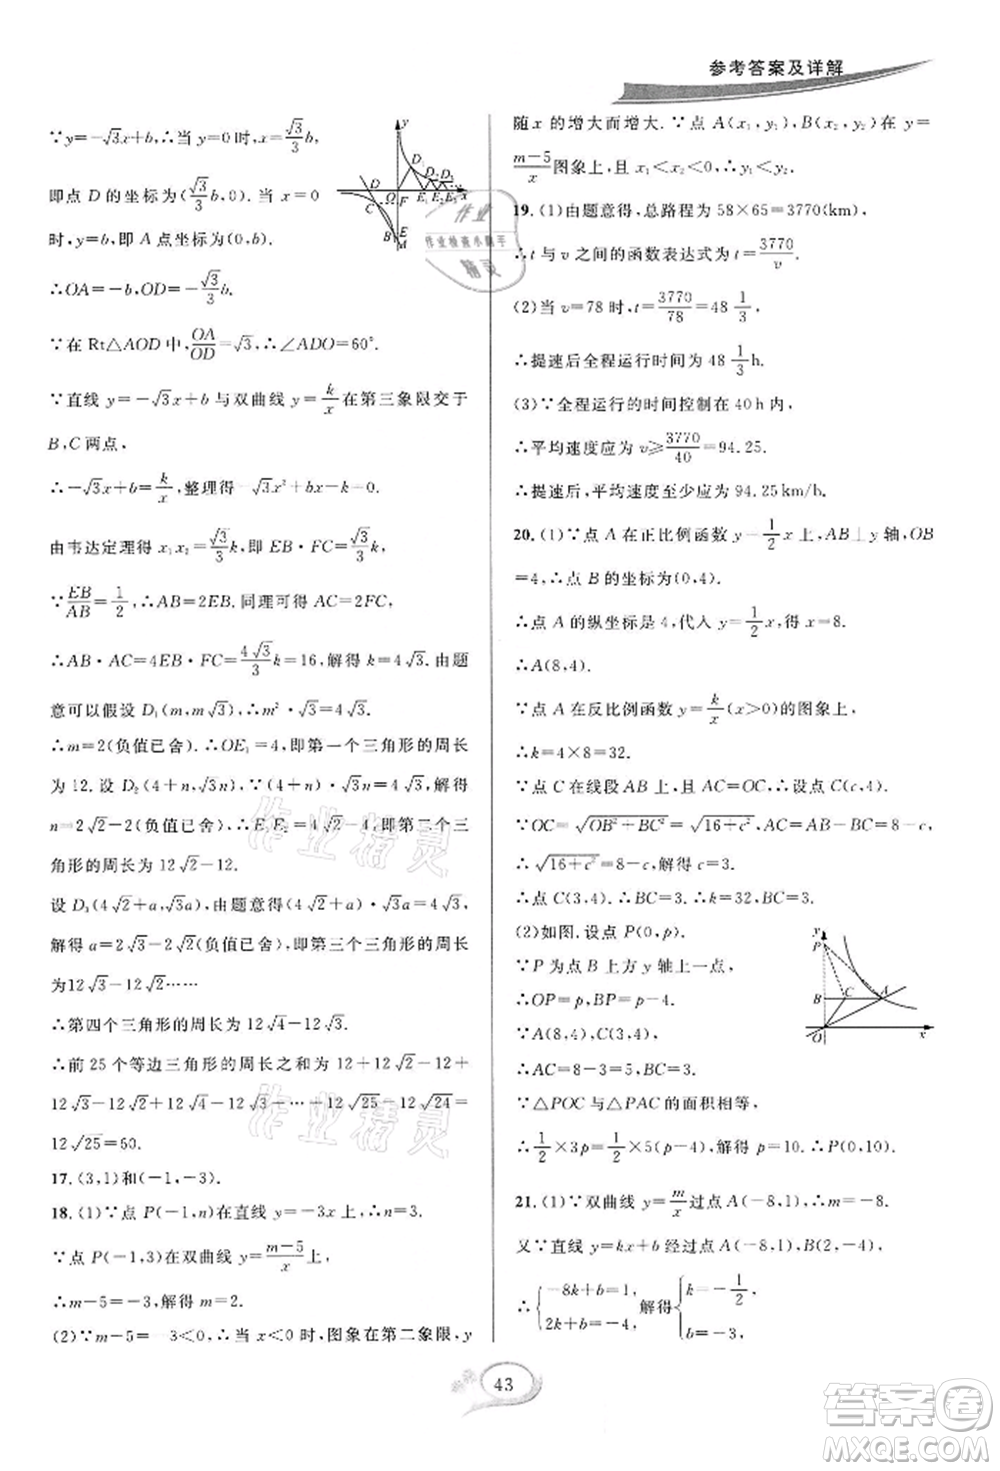 参考答案及详解
∵y=-√3x+b,∴当 y=0时,x=√3/3 b,
即点 D 的坐标为(√3/3 b,0). 当 x=0
时,y=b,即 A 点坐标为(0,b).
∴OA=-b,OD=-√3/3 b.
∵在 Rt△AOD 中,OA/OD=√3,∴∠ADO=60°.
∵直线 y=-√3x+b 与双曲线 y=k/x 在第三象限交于
B,C 两点,
∴-√3x+b=k/x,整理得-√3x²+bx-k=0.
由韦达定理得 x₁x₂=√3/3 k,即 EB·FC=√3/3 k.
∵EB/AB=1/2,∴AB=2EB. 同理可得 AC=2FC,
∴AB·AC=4EB·FC=4√3/3 k=16,解得 k=4√3. 由题
意可以假设 D₁(m,m√3),∴m²·√3=4√3.
∴m=2(负值已舍).∴OE₁=4,即第一个三角形的周长
为 12. 设 D₂(4+n,√3n),∵(4+n)·√3n=4√3,解得
n=2√2-2(负值已舍),∴E₁E₂=4√2-4,即第二个三
角形的周长为 12√2-12.
设 D₃(4√2+a,√3a),由题意得(4√2+a)·√3a=4√3,
解得 a=2√3-2√2(负值已舍),即第三个三角形的周长
为12√3-12√2……
∴第四个三角形的周长为 12√4-12√3.
∴前 25 个等边三角形的周长之和为 12+12√2-12+
12√3-12√2+12√4-12√3+…+12√25-12√24=
12√25=60.
17. (3,1)和(-1,-3).
18. (1)∵点 P(-1,n)在直线 y=-3x 上,∴n=3.
∵点 P(-1,3)在双曲线 y=m-5/x 上,
∴m-5=-3,解得 m=2.
(2)∵m-5=-3<0,∴当 x<0 时,图象在第二象限,y
随 x 的增大而增大. ∵点 A(x₁,y₁),B(x₂,y₂)在 y=
m-5/x 图象上,且 x₁<x₂<0,∴y₁<y₂.
19. (1)由题意得,总路程为 58×65=3770(km),
∴t 与 v 之间的函数表达式为 t=3770/v.
(2)当 v=78 时,t=3770/78=48 1/3,
∴提速后全程运行时间为 48 1/3 h.
(3)∵全程运行的时间控制在 40 h 内,
∴平均速度应为 v≥3770/40=94.25.
∴提速后,平均速度至少应为 94.25 km/h.
20. (1)∵点 A 在正比例函数 y=1/2 x 上,AB⊥y 轴,OB
=4,∴点 B 的坐标为(0,4).
∴点 A 的纵坐标是 4,代入 y=1/2 x,得 x=8.
∴A(8,4).
∵点 A 在反比例函数 y=k/x(x>0)的图象上,
∴k=4×8=32.
∵点 C 在线段 AB 上,且 AC=OC,∴设点 C(c,4).
∵OC=√OB²+BC²=√16+c²,AC=AB-BC=8-c,
∴√16+c²=8-c,解得 c=3.
∴点 C(3,4).∴BC=3.∴k=32,BC=3.
(2)如图,设点 P(0,p).
∵P 为点 B 上方 y 轴上一点,
∴OP=p,BP=p-4.
∵A(8,4),C(3,4),
∴AC=8-3=5.
∵△POC 与△PAC 的面积相等,
∴1/2×3p=1/2×5(p-4),解得 p=10.∴P(0,10).
21. (1)∵双曲线 y=m/x 过点 A(-8,1),∴m=-8.
又∵直线 y=kx+b 经过点 A(-8,1),B(2,-4),
∴{-8k+b=1, 2k+b=-4, 解得{k=-1/2, b=-3.
43
作业精灵
作业检查小助手
答案圈
MXQE.COM